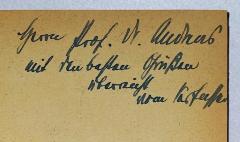 Herrn Prof. W. Andreas
mit den besten Grüßen
überreicht
vom Verfasser